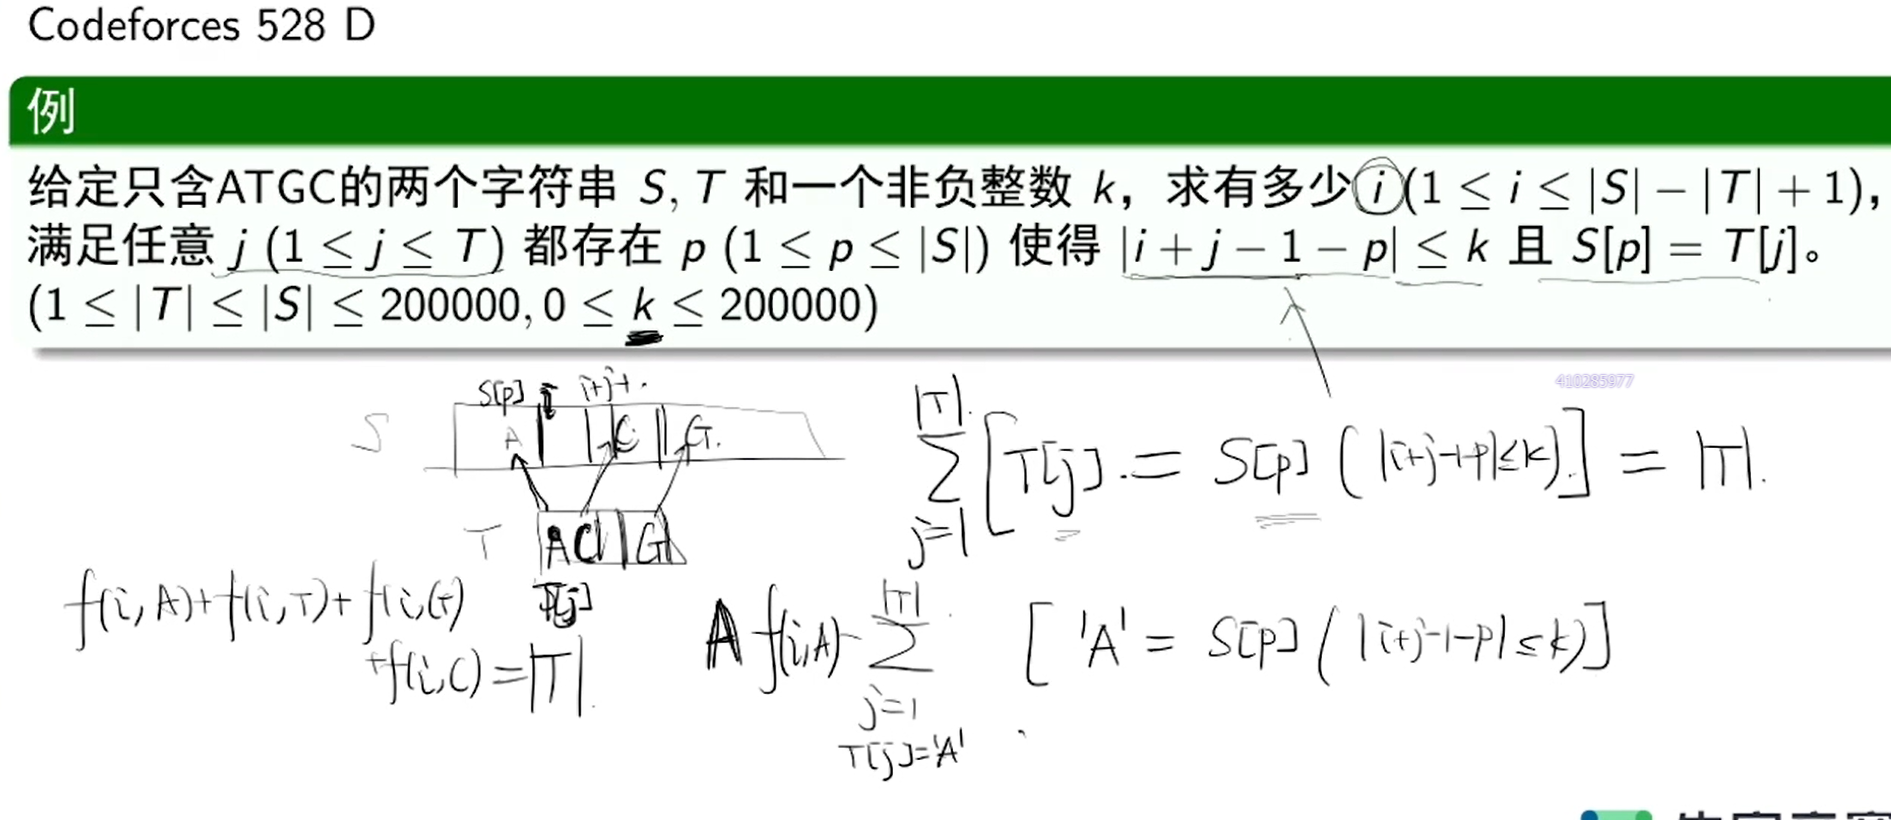 Codeforces 528 D
例
给定只含ATGC的两个字符串 S, T 和一个非负整数 k，求有多少 i (1 ≤ i ≤ |S| − |T| + 1)，
满足任意 j (1 ≤ j ≤ T) 都存在 p (1 ≤ p ≤ |S|) 使得 |i + j − 1 − p| ≤ k 且 S[p] = T[j]。
(1 ≤ |T| ≤ |S| ≤ 200000, 0 ≤ k ≤ 200000)
410285977
S[p] i+j-1
S A C G.
T A C G
T[j]
|T|
∑ [T[j] = S[p] (|i+j-1-p|≤k)] = |T|.
j=1
f(i,A)+f(i,T)+f(i,G)
+f(i,C)=|T|.
|T|
A f(i,A) ∑ ['A' = S[p] (|i+j-1-p|≤k)]
j=1
T[j]='A'